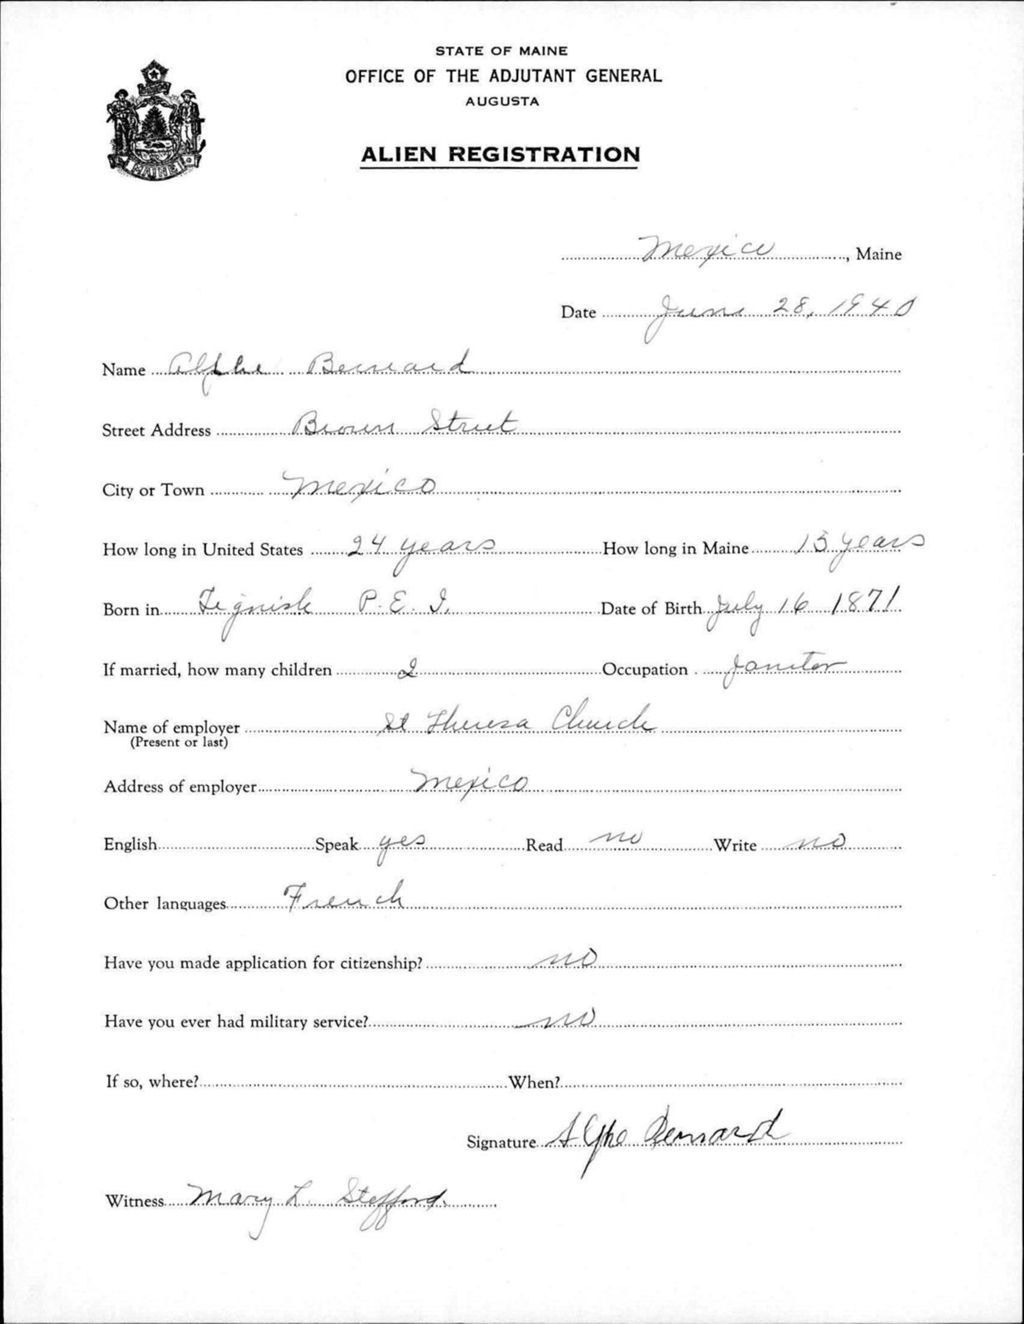 STATE OF MAINE
OFFICE OF THE ADJUTANT GENERAL
AUGUSTA
MAINE
ALIEN REGISTRATION
Mexico, Maine
Date June 28, 1940
Name Alphe Bernard
Street Address Brown Street
City or Town Mexico
How long in United States 24 years How long in Maine 13 years
Born in Tignish P. E. I. Date of Birth July 16 1871
If married, how many children 2 Occupation Janitor
Name of employer St Theresa Church
(Present or last)
Address of employer Mexico
English Speak yes Read no Write no
Other languages French
Have you made application for citizenship? no
Have you ever had military service? no
If so, where? When?
Signature Alphe Bernard
Witness Mary L. Stefford.